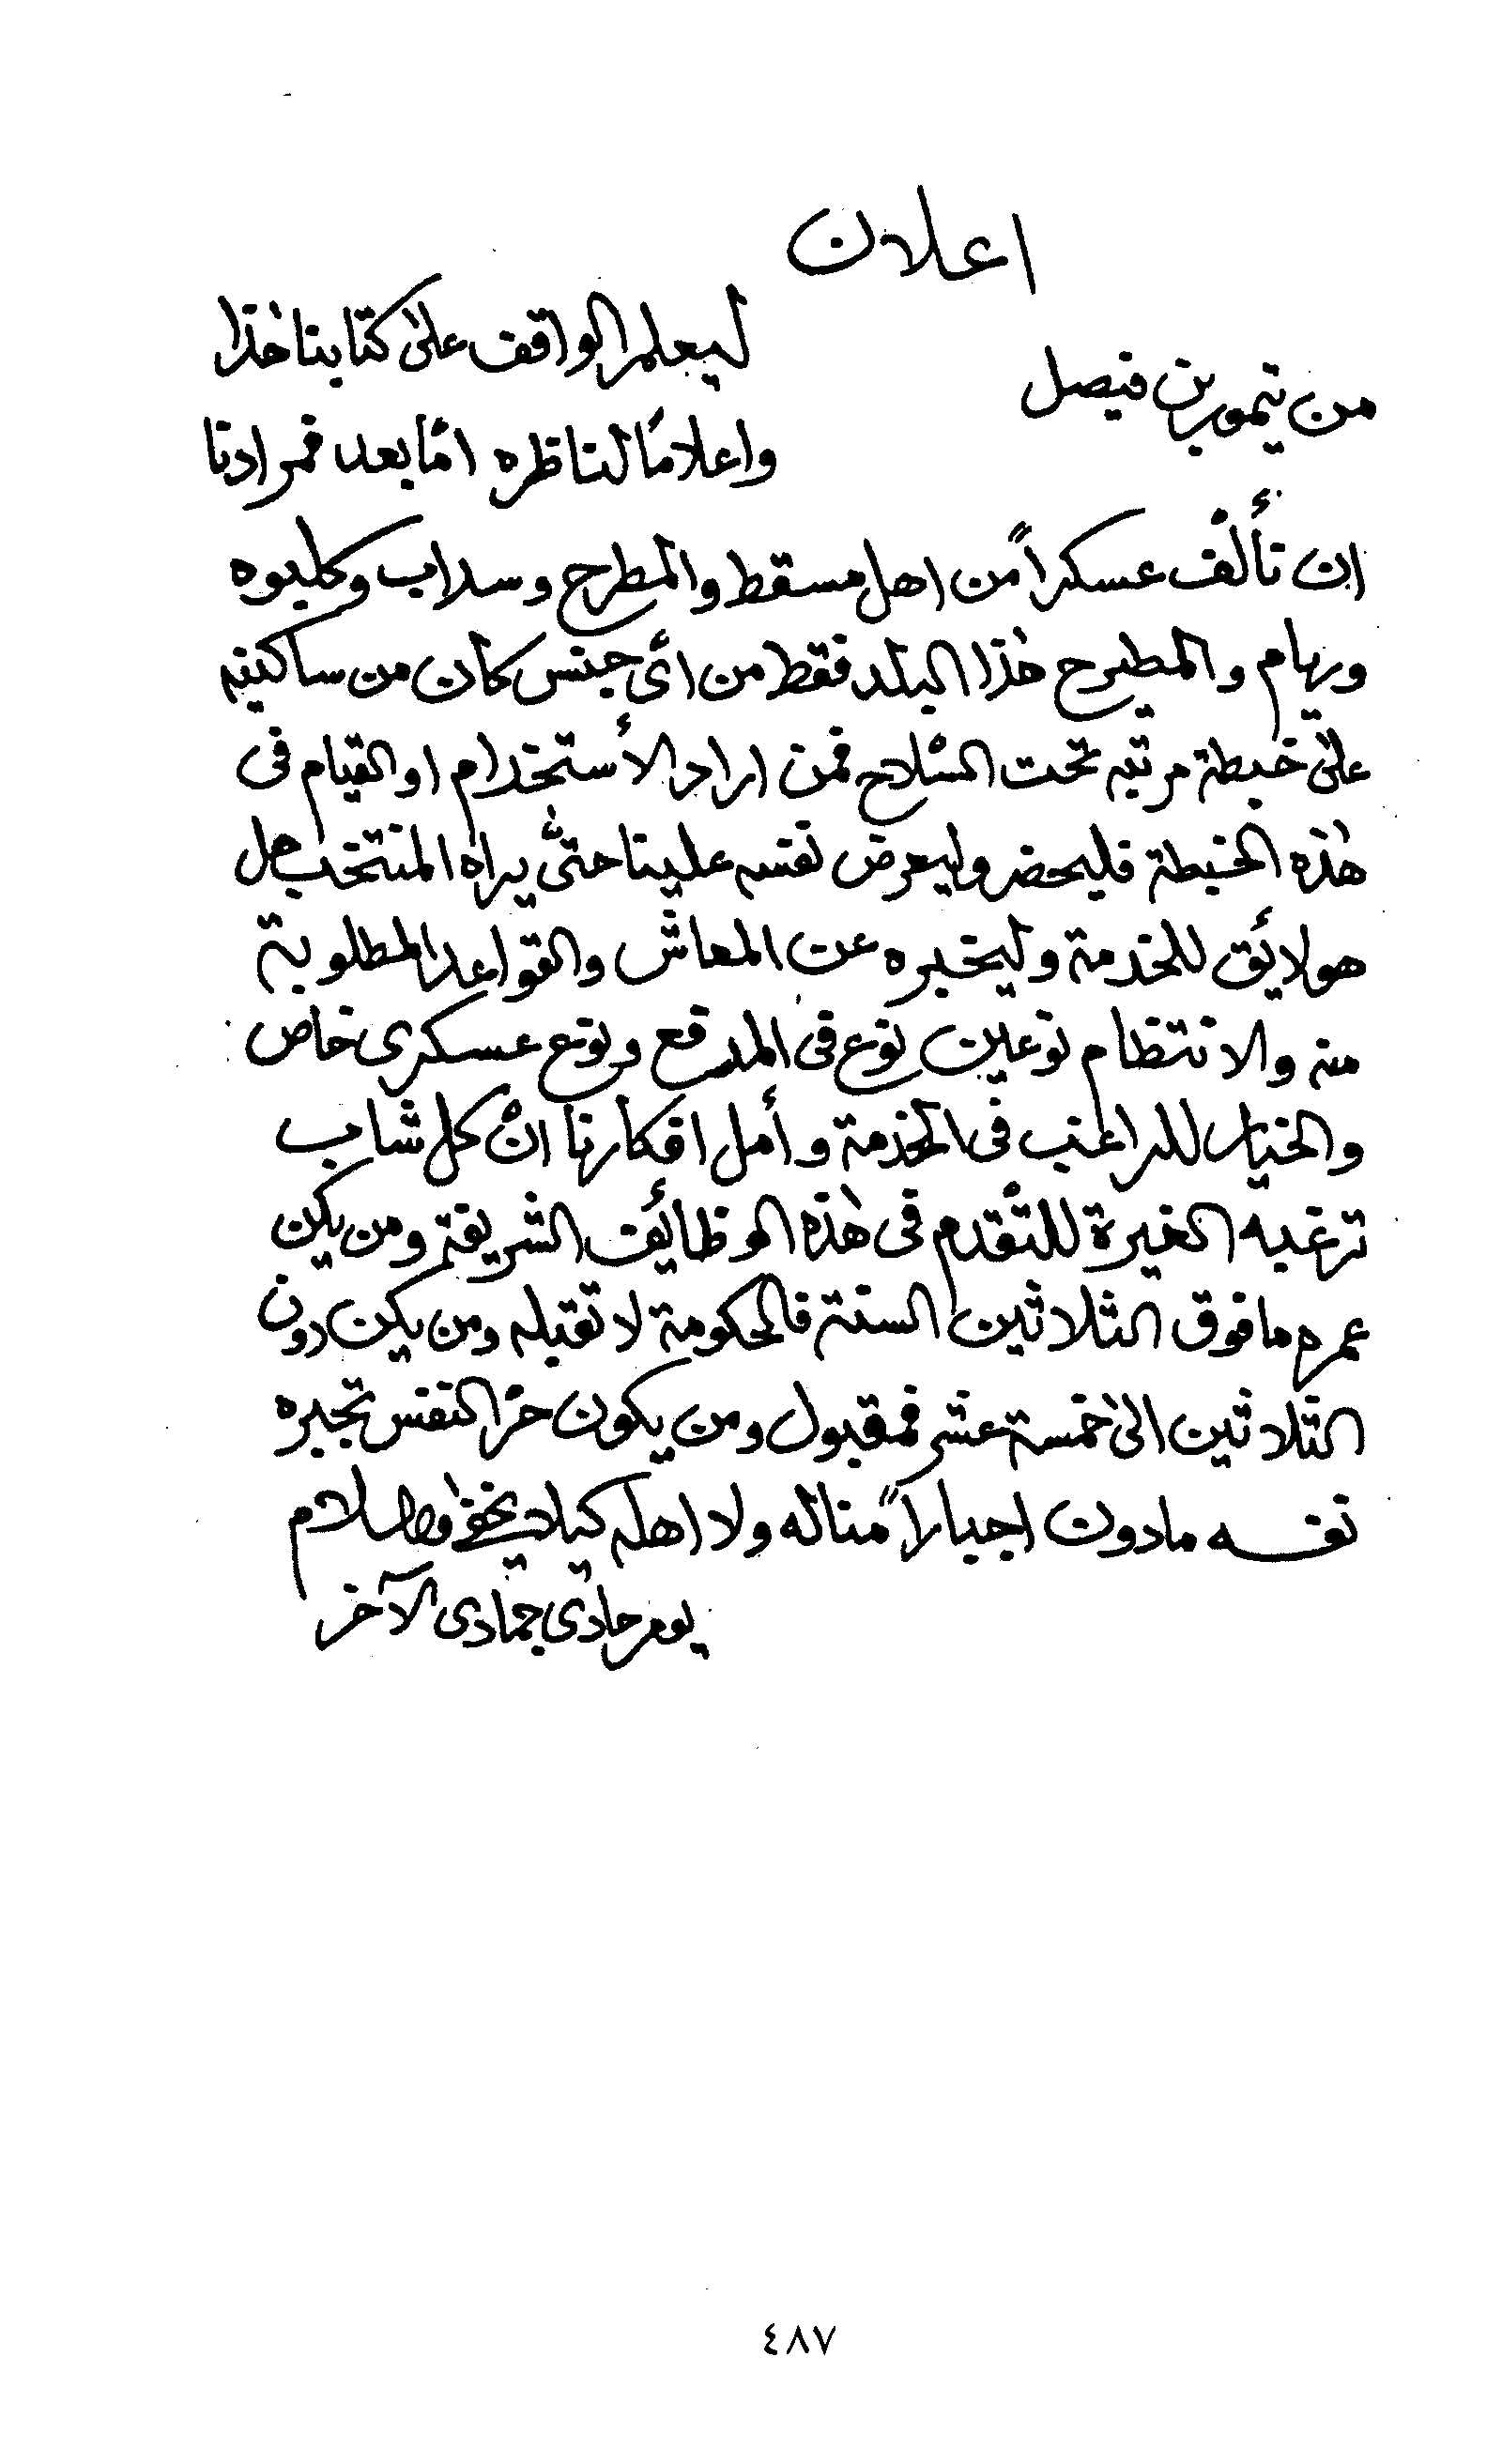 اعلان
من تيمور بن فيصل
ليعلم الواقف على كتابنا هذا
واعلامًا لناظره امّا بعد فمرادنا
ان نألّف عسكراً من اهل مسقط والمطرح وسداب وكلبوه
وريام والمطيرح هذا البلد فقط من ائ جنس كان من ساكنيه
على ضبطة مرتبه تحت السّلاح فمن اراد الأستخدام او القيام فى
هذه الضبطة فليحضر وليعرض نفسه علينا حتّى يراه المنتخب هل
هو لائق للخدمة وليخبره عن المعاش والقواعد المطلوبة
منه والانتظام نوعين نوع فى المدفع ونوع عسكرى خاص
والخيار للراغب فى الخدمة وأمل افكارنا انّ كل شاب
ترغبه الغيرة للتّقدم فى هذه الوظائف الشريفة ومن يكن
عمره مافوق الثلاثين السنة فالحكومة لا تقبله ومن يكن دون
الثلاثين الى خمسة عشر فمقبول ومن يكون حرّ النفس تجبره
نفسه مادون اجباراً مناله ولا اهله كيلا يخفى والسلام
يوم حادى جمادى الآخر
٤٨٧